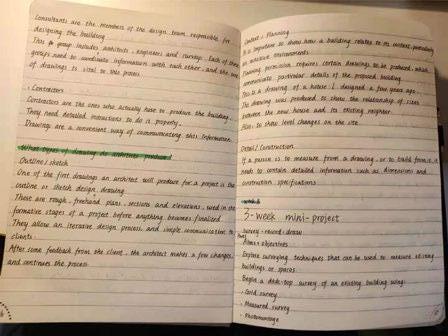 Consultants are the members of the design team responsible for
designing the building.
This group includes architects, engineers and surveyors. Each of these
groups need to coordinate information with each other, and the use
of drawings is vital to this process.
: Contractors
Contractors are the ones who actually have to produce the building.
They need detailed instructions to do it properly.
Drawings are a convenient way of communicating this information.
What types of drawing do architects produce?
Outline / sketch
One of the first drawings an architect will produce for a project is the
outline or sketch design drawing.
These are rough, freehand plans, sections and elevations, used in the
formative stages of a project before anything becomes finalized.
They allow an iterative design process and simple communication to
clients.
After some feedback from the client, the architect makes a few changes,
and continues the process.
Context / Planning
It is important to show how a building relates to its context, particularly
in sensitive environments.
Planning permission requires certain drawings to be produced, which
communicate particular details of the proposed building.
This is a drawing of a house I designed a few years ago.
The drawing was produced to show the relationship of sizes
between the new house and its existing neighbor.
Also to show level changes on the site.
Detail / Construction
If a person is to measure from a drawing, or to build from it, it
need to contain detailed information such as dimensions and
construction specifications
3-week mini-project
survey - record - draw
Aims + objectives
Explore surveying techniques that can be used to measure existing
buildings or spaces.
Begin a desk-top survey of an existing building using:
- Grid survey
- Measured survey
- Photomontage